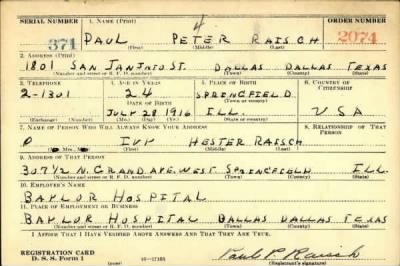 SERIAL NUMBER 1. NAME (Print) ORDER NUMBER
4
371 PAUL PETER RAISCH 2074
(First) (Middle) (Last)
2. ADDRESS (Print)
1801 SAN JANINTO ST. DALLAS DALLAS TEXAS
(Number and street or R. F. D. number) (Town) (County) (State)
3. TELEPHONE 4. AGE IN YEARS 5. PLACE OF BIRTH 6. COUNTRY OF CITIZENSHIP
2-1301 24 SPRENGFIELD
DATE OF BIRTH (Town or county)
JULY 28 1916 ILL. USA
(Exchange) (Number) (Mo.) (Day) (Yr.) (State or country)
7. NAME OF PERSON WHO WILL ALWAYS KNOW YOUR ADDRESS 8. RELATIONSHIP OF THAT PERSON
IVY HESTER RAISCH
(First) (Middle) (Last)
9. ADDRESS OF THAT PERSON
307 1/2 N. GRAND AVE. WEST SPRENGFIELD ILL.
(Number and street or R. F. D. number) (Town) (County) (State)
10. EMPLOYER'S NAME
BAYLOR HOSPITAL
11. PLACE OF EMPLOYMENT OR BUSINESS
BAYLOR HOSPITAL DALLAS DALLAS TEXAS
(Number and street or R. F. D. number) (Town) (County) (State)
I AFFIRM THAT I HAVE VERIFIED ABOVE ANSWERS AND THAT THEY ARE TRUE.
REGISTRATION CARD
D. S. S. Form 1 16—17105 Paul P. Raisch
(Registrant's signature)